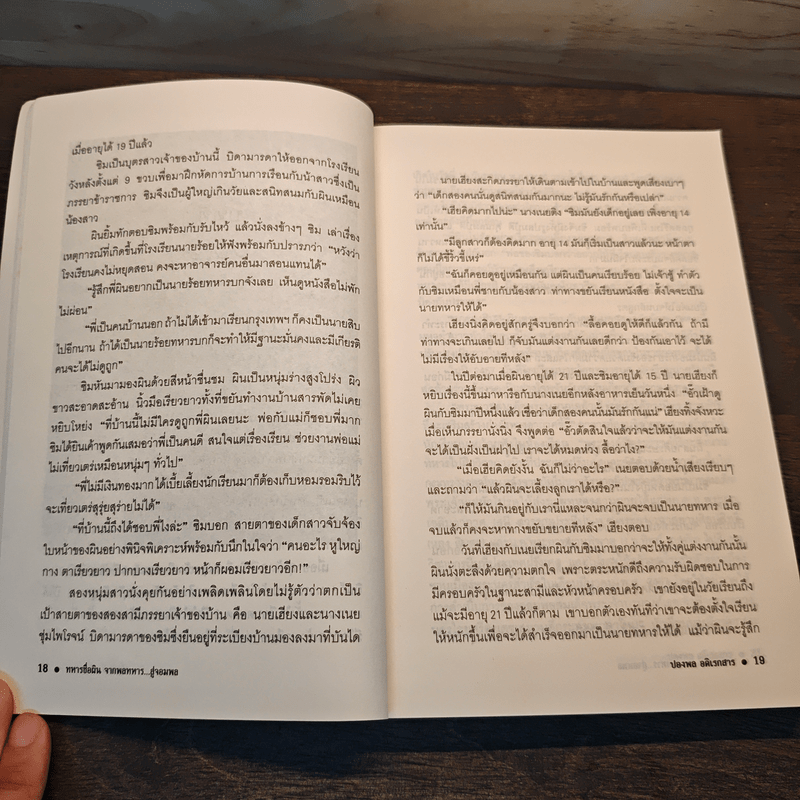 เมื่ออายุได้ 19 ปีแล้ว
ซิมเป็นบุตรสาวเจ้าของบ้านนี้ บิดามารดาให้ออกจากโรงเรียน
วังหลังตั้งแต่ 9 ขวบเพื่อมาฝึกหัดการบ้านการเรือนกับน้าสาวซึ่งเป็น
ภรรยาข้าราชการ ซิมจึงเป็นผู้ใหญ่เกินวัยและสนิทสนมกับผินเหมือน
น้องสาว
ผินยิ้มทักตอบซิมพร้อมกับรับไหว้ แล้วนั่งลงข้างๆ ซิม เล่าเรื่อง
เหตุการณ์ที่เกิดขึ้นที่โรงเรียนนายร้อยให้ฟังพร้อมกับปรารภว่า “หวังว่า
โรงเรียนคงไม่หยุดสอน คงจะหาอาจารย์คนอื่นมาสอนแทนได้”
“รู้สึกพี่ผินอยากเป็นนายร้อยทหารบกจังเลย เห็นดูหนังสือไม่พัก
ไม่ผ่อน”
“พี่เป็นคนบ้านนอก ถ้าไม่ได้เข้ามาเรียนกรุงเทพฯ ก็คงเป็นนายสิบ
ไปอีกนาน ถ้าได้เป็นนายร้อยทหารบกก็จะทำให้มีฐานะมั่นคงและมีเกียรติ
คนจะได้ไม่ดูถูก”
ซิมหันมามองผินด้วยสีหน้าชื่นชม ผินเป็นหนุ่มร่างสูงโปร่ง ผิว
ขาวสะอาดสะอ้าน นิ้วมือเรียวยาวทั้งที่ขยันทำงานบ้านสารพัดไม่เคย
หยิบโหย่ง “ที่บ้านนี้ไม่มีใครดูถูกพี่ผินเลยนะ พ่อกับแม่ก็ชอบพี่มาก
ซิมได้ยินเค้าพูดกันเสมอว่าพี่เป็นคนดี สนใจแต่เรื่องเรียน ช่วยงานพ่อแม่
ไม่เที่ยวเตร่เหมือนหนุ่มๆ ทั่วไป”
“พี่ไม่มีเงินทองมากได้เบี้ยเลี้ยงนักเรียนมาก็ต้องเก็บหอมรอมริบไว้
จะเที่ยวเตร่สุรุ่ยสุร่ายไม่ได้”
“ที่บ้านนี้ถึงได้ชอบพี่ไงล่ะ” ซิมบอก สายตาของเด็กสาวจับจ้อง
ใบหน้าของผินอย่างพินิจพิเคราะห์พร้อมกับนึกในใจว่า “คนอะไร หูใหญ่
กาง ตาเรียวยาว ปากบางเรียวยาว หน้าก็ผอมเรียวยาวอีก!”
สองหนุ่มสาวนั่งคุยกันอย่างเพลิดเพลินโดยไม่รู้ตัวว่าตกเป็น
เป้าสายตาของสองสามีภรรยาเจ้าของบ้าน คือ นายเฮียงและนางเนย
ชุ่มไพโรจน์ บิดามารดาของซิมซึ่งยืนอยู่ที่ระเบียงบ้านมองลงมาที่บันได
18 ● ทหารชื่อผิน จากพลทหาร...สู่จอมพล
นายเฮียงสะกิดภรรยาให้เดินตามเข้าไปในบ้านและพูดเสียงเบาๆ
ว่า “เด็กสองคนนั่นดูสนิทสนมกันมากนะ ไม่รู้รักกันหรือเปล่า”
“เฮียคิดมากไปน่ะ” นางเนยติง “ซิมมันยังเด็กอยู่เลย เพิ่งอายุ 14
เท่านั้น”
“มีลูกสาวก็ต้องคิดมาก อายุ 14 มันก็เริ่มเป็นสาวแล้วนะ หน้าตา
ก็ไม่ได้ขี้ริ้วขี้เหร่”
“ฉันก็คอยดูอยู่เหมือนกัน แต่ผินเป็นคนเรียบร้อย ไม่เจ้าชู้ ทำตัว
กับซิมเหมือนพี่ชายกับน้องสาว ท่าทางขยันเรียนหนังสือ ตั้งใจจะเป็น
นายทหารให้ได้”
เฮียงนิ่งคิดอยู่สักครู่จึงบอกว่า “ลื้อคอยดูให้ดีก็แล้วกัน ถ้ามี
ท่าทางจะเกินเลยไป ก็จับมันแต่งงานกันเลยดีกว่า ป้องกันเอาไว้ จะได้
ไม่มีเรื่องให้อับอายทีหลัง”
ในปีต่อมาเมื่อผินอายุได้ 21 ปีและซิมอายุได้ 15 ปี นายเฮียงก็
หยิบเรื่องนี้ขึ้นมาหารือกับนางเนยอีกหลังอาหารเย็นวันหนึ่ง “อั๊วเฝ้าดู
ผินกับซิมมาปีหนึ่งแล้ว เชื่อว่าเด็กสองคนนั้นมันรักกันแน่” เฮียงทิ้งจังหวะ
เมื่อเห็นภรรยานั่งนิ่ง จึงพูดต่อ “อั๊วตัดสินใจแล้วว่าจะให้มันแต่งงานกัน
จะได้เป็นฝั่งเป็นฝาไป เราจะได้หมดห่วง ลื้อว่าไง?”
“เมื่อเฮียคิดยังงั้น ฉันก็ไม่ว่าอะไร” เนยตอบด้วยน้ำเสียงเรียบๆ
และถามว่า “แล้วผินจะเลี้ยงลูกเราได้หรือ?”
“ก็ให้มันกินอยู่กับเรานี่แหละจนกว่าผินจะจบเป็นนายทหาร เมื่อ
จบแล้วก็คงจะหาทางขยับขยายทีหลัง” เฮียงตอบ
วันที่เฮียงกับเนยเรียกผินกับซิมมาบอกว่าจะให้ทั้งคู่แต่งงานกันนั้น
ผินนั่งตะลึงด้วยความตกใจ เพราะตระหนักดีถึงความรับผิดชอบในการ
มีครอบครัวในฐานะสามีและหัวหน้าครอบครัว เขายังอยู่ในวัยเรียนถึง
แม้จะมีอายุ 21 ปีแล้วก็ตาม เขาบอกตัวเองทันทีว่าเขาจะต้องตั้งใจเรียน
ให้หนักขึ้นเพื่อจะได้สำเร็จออกมาเป็นนายทหารให้ได้ แม้ว่าผินจะรู้สึก
ปองพล อดิเรกสาร ● 19